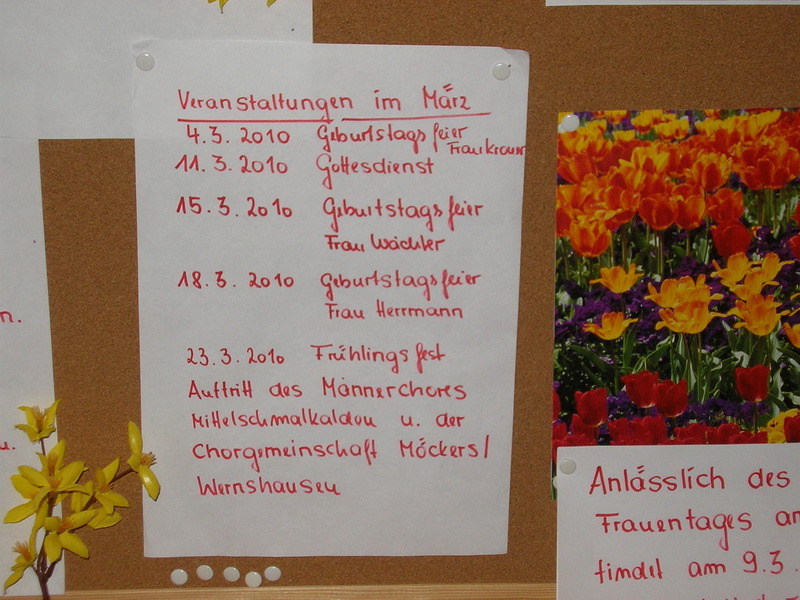 Veranstaltungen im März
4.3. 2010 Geburtstagsfeier
Frau Krauser
11.3. 2010 Gottesdienst
15.3. 2010 Gebutstagsfeier
Frau Wächter
18.3. 2010 Geburtstagsfeier
Frau Herrmann
23.3.2010 Frühlingsfest
Auftritt des Männerchores
Mittelschmalkalden u. der
Chorgemeinschaft Möckers/
Wernshausen
n.
u.
Anlässlich des
Frauentages am
findet am 9.3.